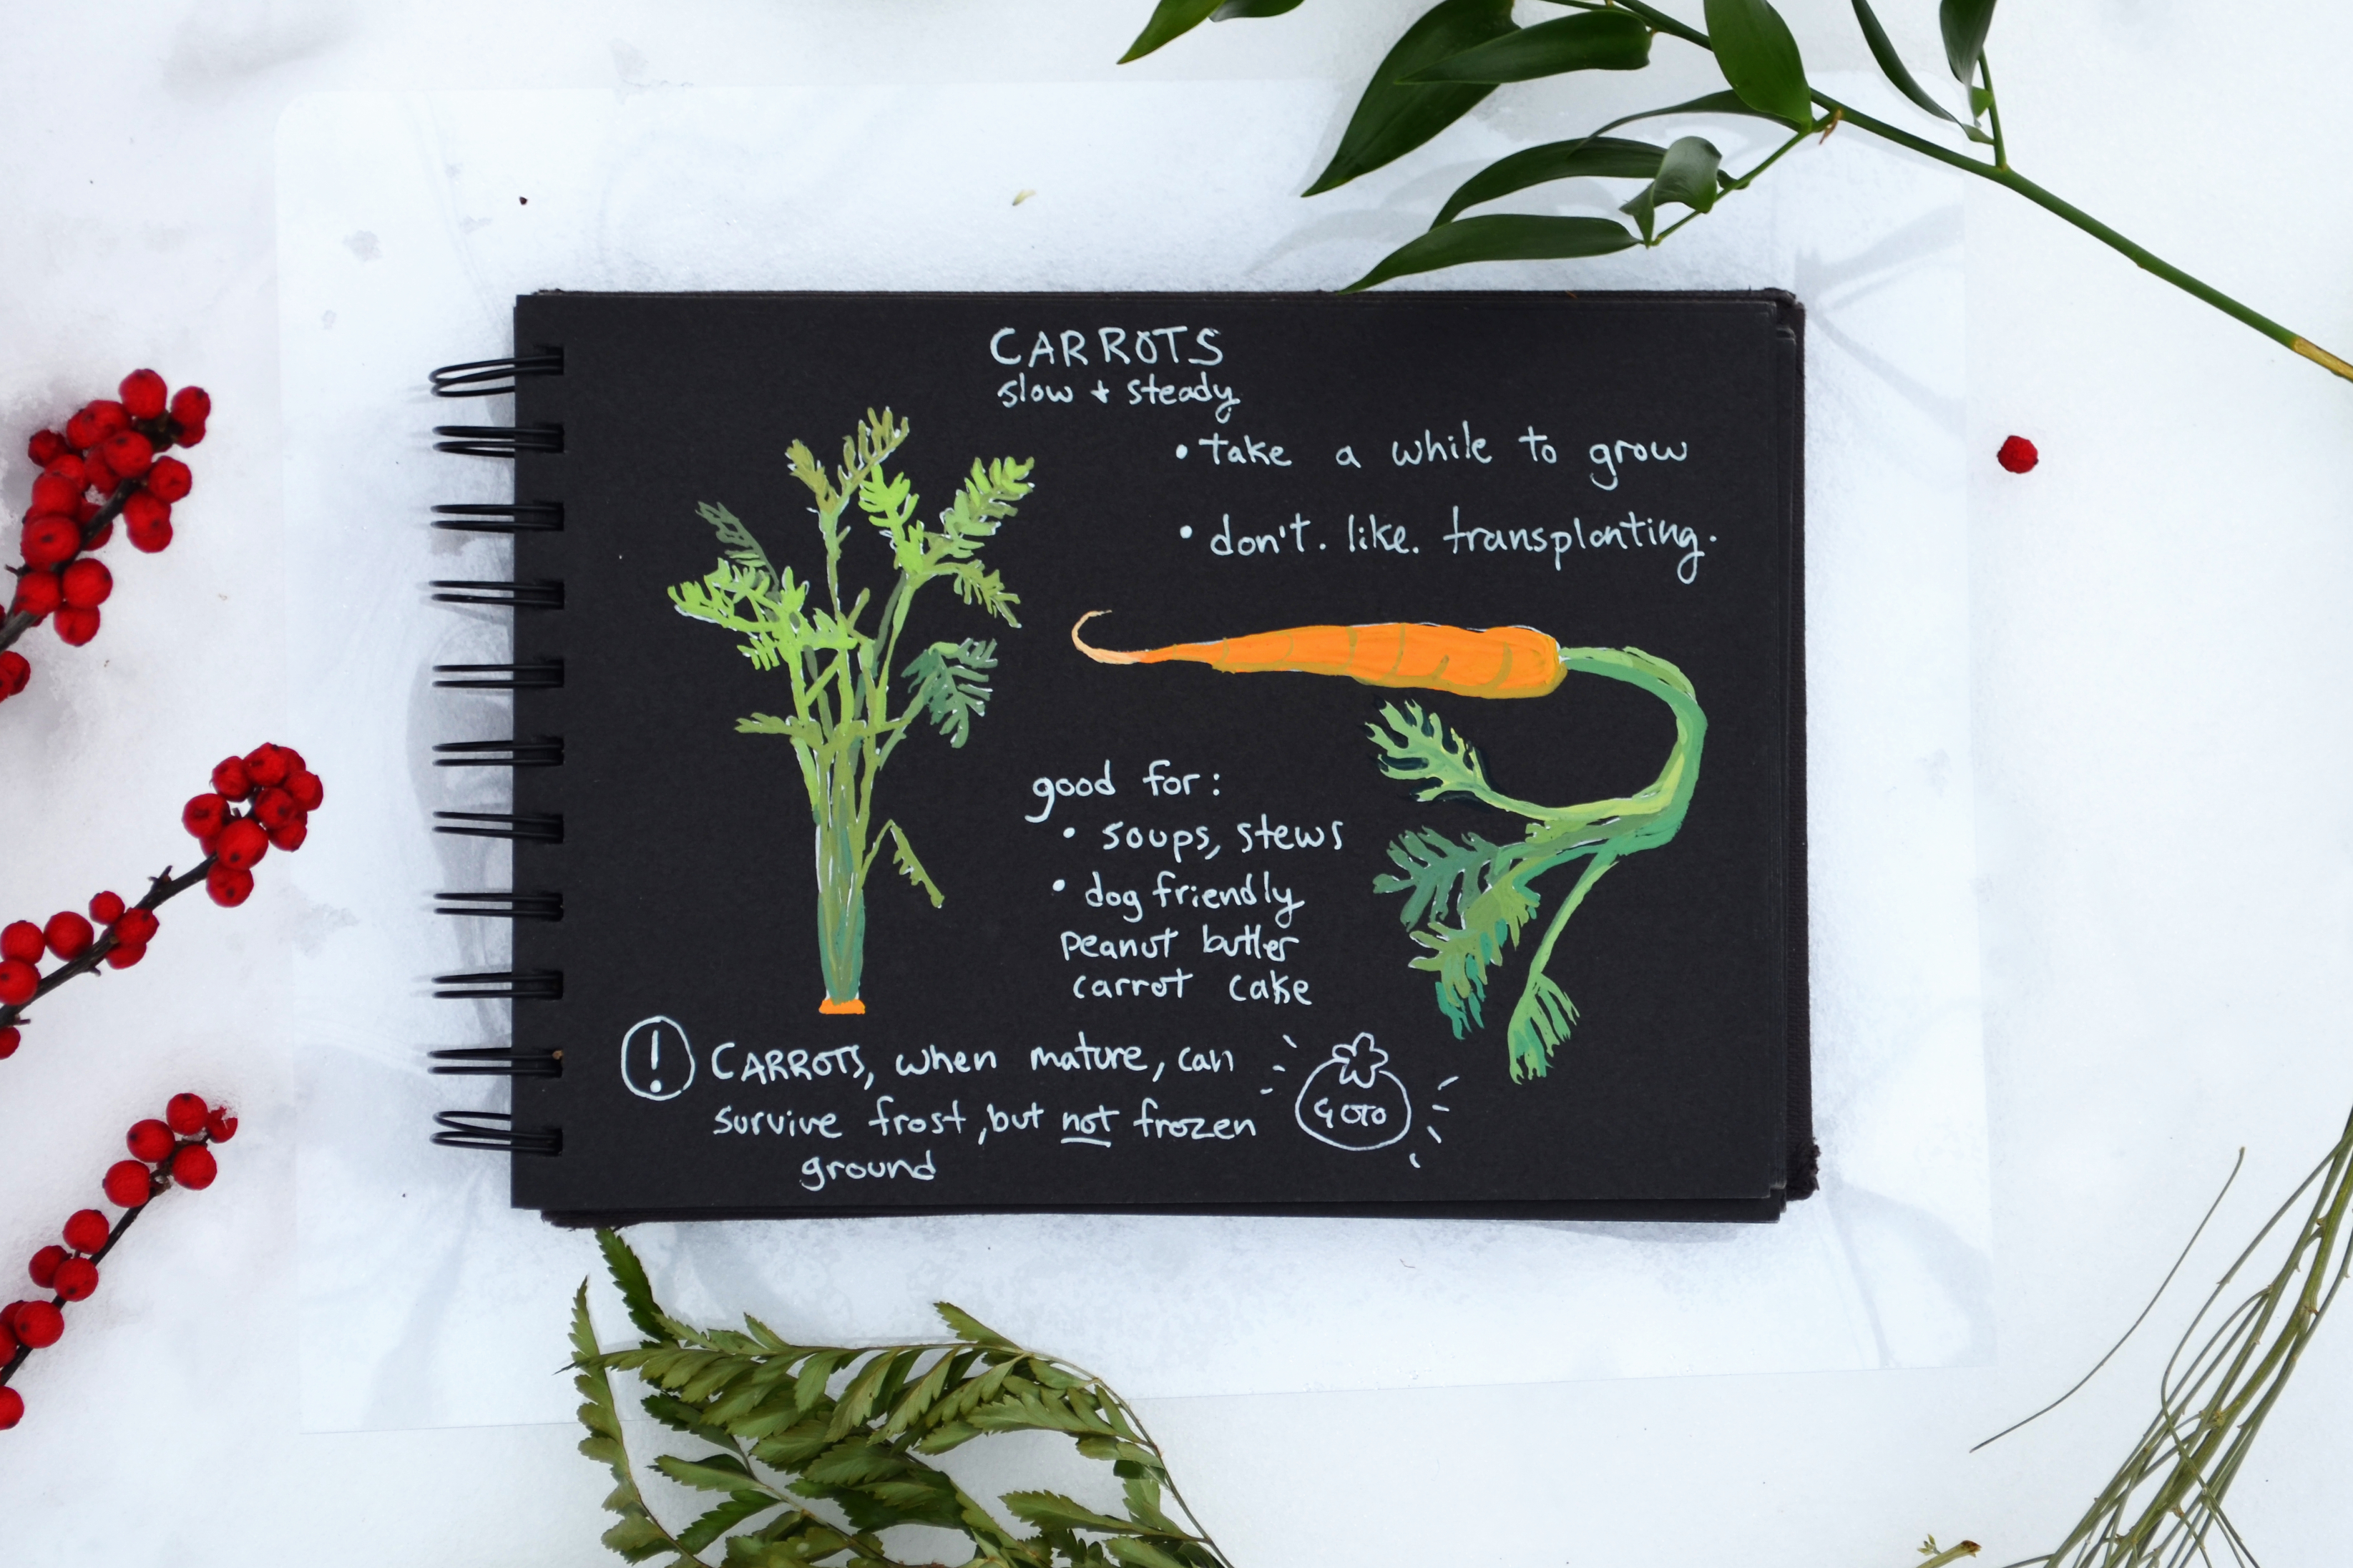 CARROTS
slow + steady
• take a while to grow
• don't. like. transplanting.
good for:
• soups, stews
• dog friendly
peanut butter
carrot cake
! CARROTS, when mature, can
survive frost, but not frozen
ground
GOTO